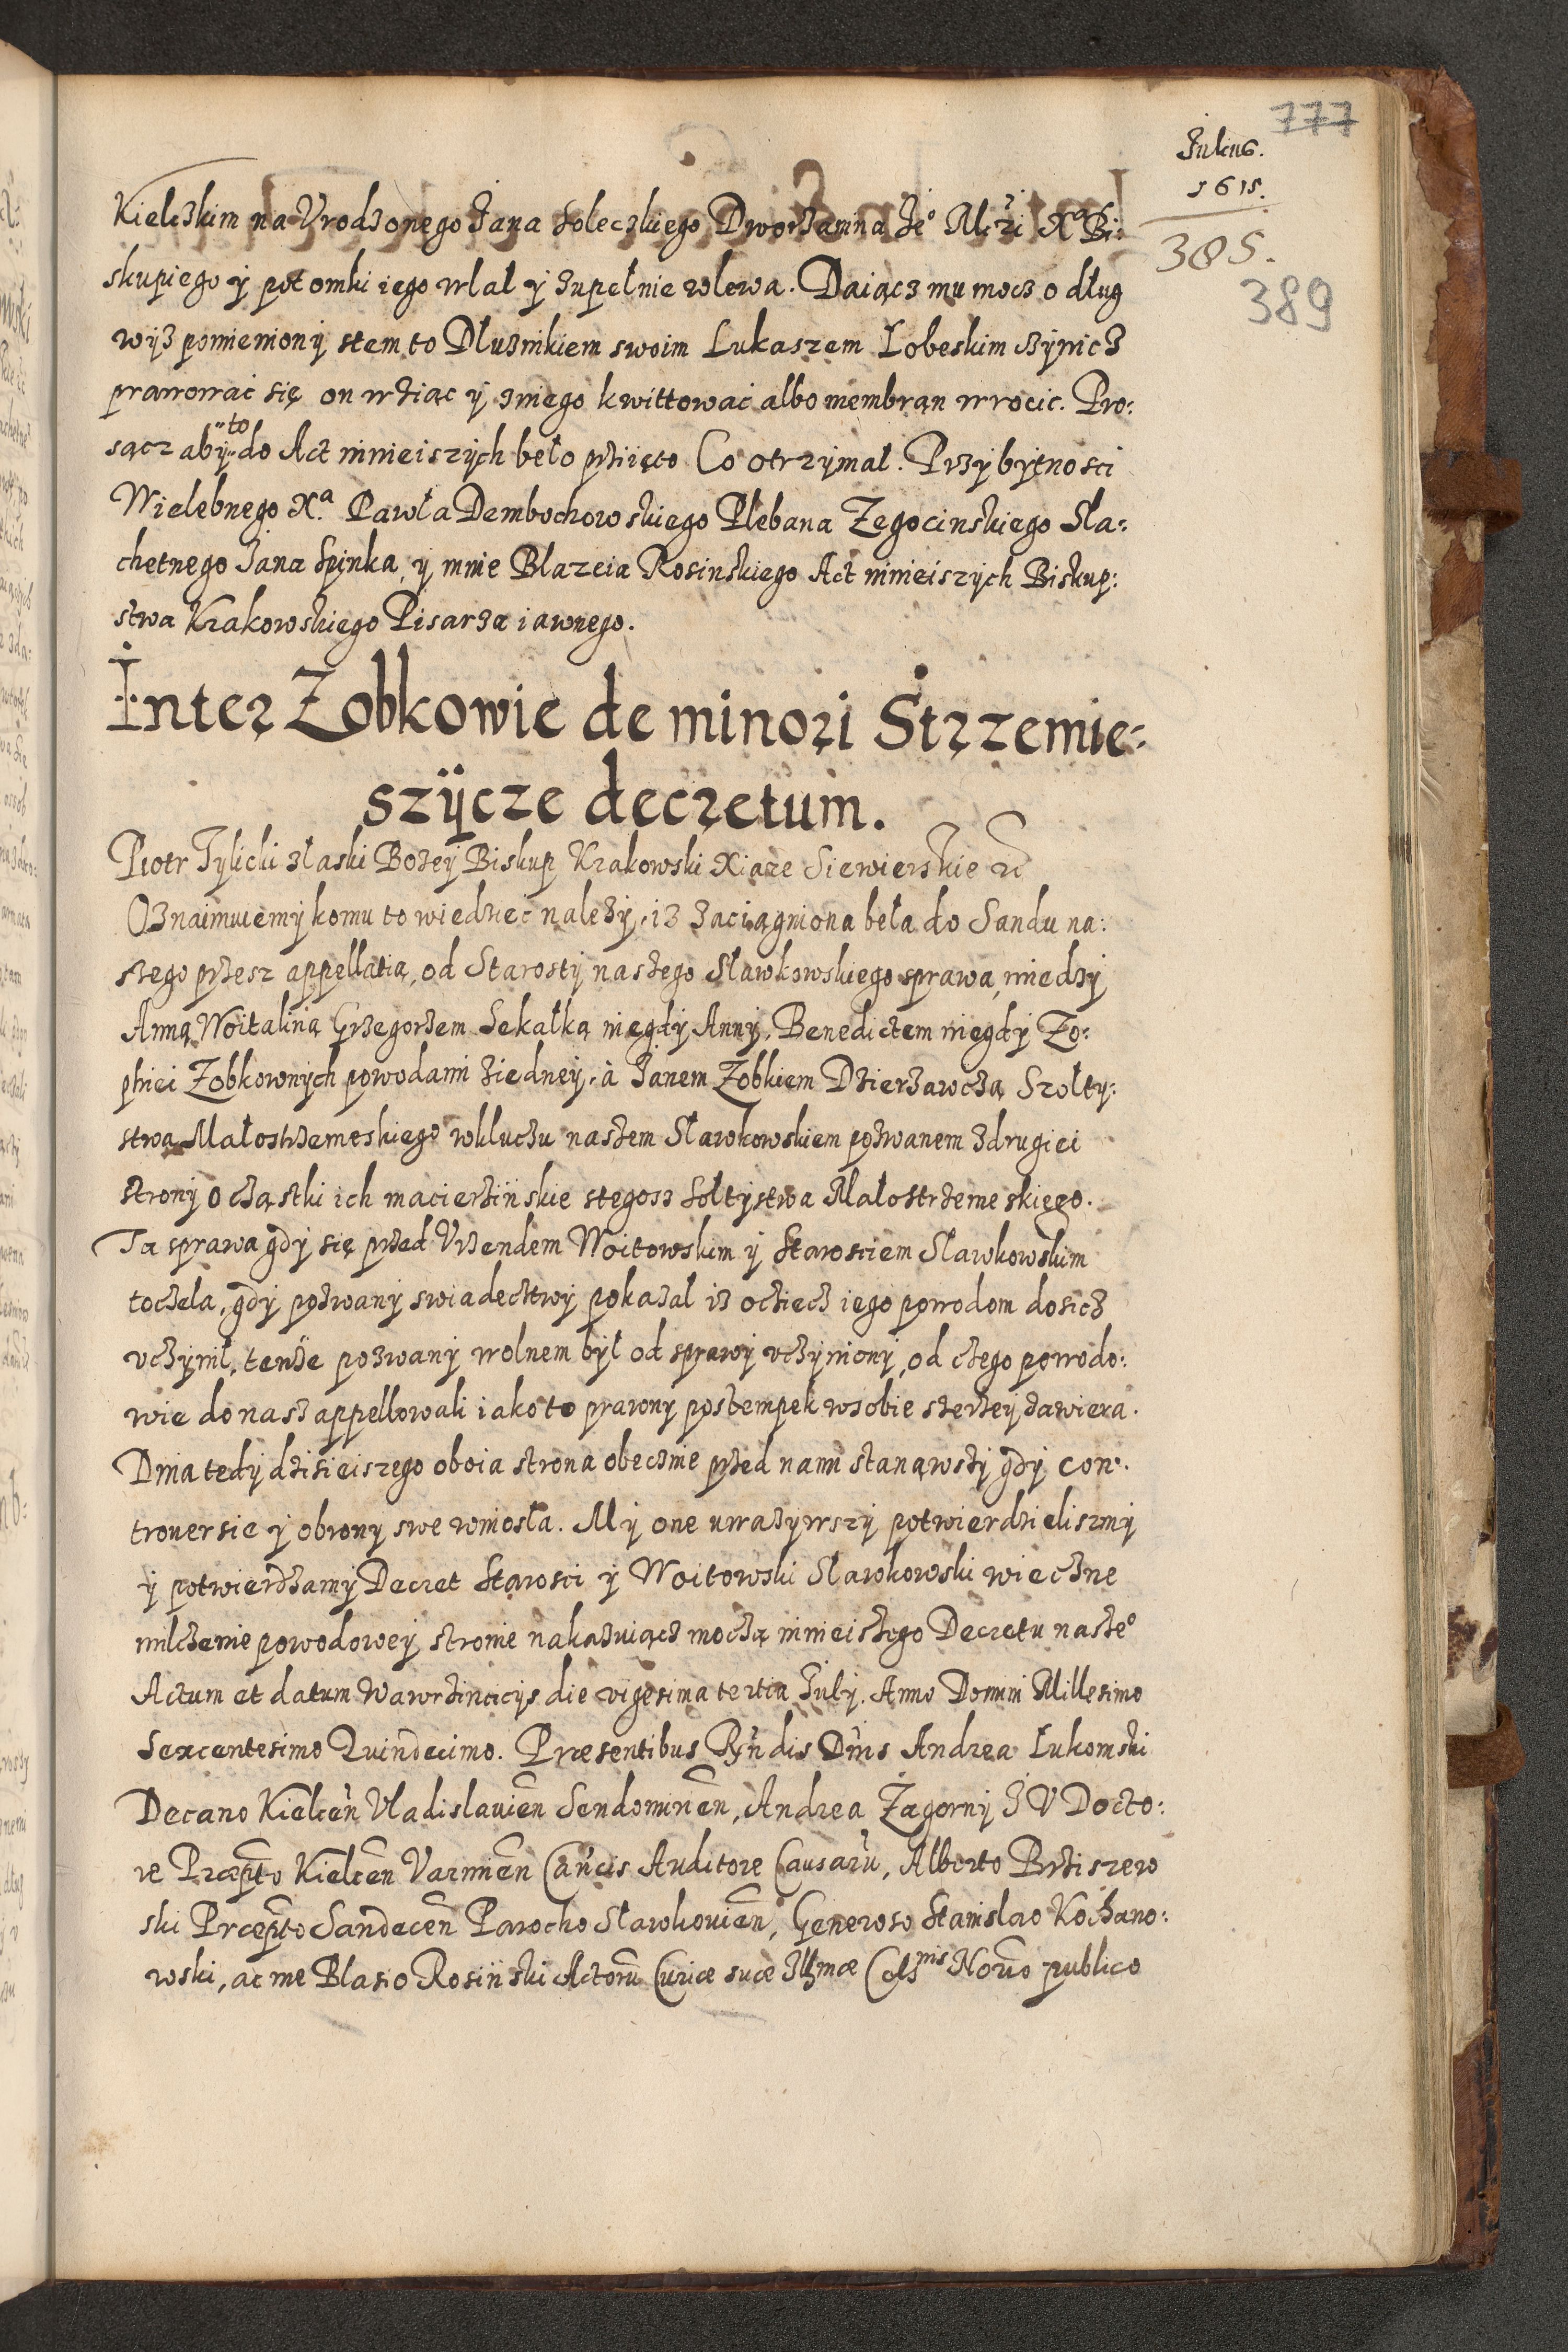 777
Julius.
1615.
385.
389
Kielczkim na Vrodzonego Jana Soleczkiego Dworzanina Je° Mczi Xa Bi:
skupiego ÿ potomki iego wlał ÿ zupełnie wlewa. Daiącz mu mocz o dług
wÿz pomienionÿ stem to Dłuznikiem swoim Lukaszem Lobeskim czÿnicz
prawowac się on wziąc ÿ zniego kwittowac albo membran wrocic. Pro:
sącz abÿ to do Act ninieiszÿch beło prziięto Co otrzÿmał. Przÿ bÿtnosci
Wielebnego X.a Pawła Dembochowskiego Plebana Zegocinskiego Sla:
chetnego Jana Spinka, ÿ mnie Blazeia Rosinskiego Act ninieiszÿch Biskup:
stwa Krakowskiego Pisarza iawnego.
Inter Zobkowie de minori Strzemie:
szÿcze decretum.
Piotr Tylicki złaski Bozeÿ Biskup Krakowski Xiąze Siewierskie etc
Oznaimuiemÿ komu to wiedziec nalezÿ, iz zaciągniona beła do Sandu na:
szego przesz appellatią, od Starostÿ naszego Sławkowskiego sprawa, miedzÿ
Anną Woitaliną Grzegorzem Sekałką niegdÿ Annÿ, Benedictem niegdÿ Zo:
phiei Zobkownÿch powodami ziedneÿ, à Janem Zobkiem Dzierzawczą Szołtÿ:
stwa Małostrzemeskiego wkluczu naszem Sławkowskiem pozwanem zdrugiei
stronÿ o cząstki ich macierzÿnskie stegosz sołtÿstwa Małostrzemeskiego.
Ta sprawa gdÿ się przed Vrzendem Woitowskim ÿ Starosciem Sławkowskim
toczela, gdÿ pozwanÿ swiadecztwÿ pokazał iz ocziecz iego powodom dosicz
vczÿnił, tenże pozwanÿ wolnem bÿł od sprawÿ vczÿnionÿ, od czego powodo:
wie do nasz appellowali iako to prawnÿ postempek wsobie szerzeÿ zawiera.
Dnia tedÿ dzisieiszego oboia strona obecznie przed nami stanąwszÿ gdÿ con:
trouersie ÿ obronÿ swe wniosła. Mÿ one uwazÿwszÿ potwierdzieliszmÿ
ÿ potwierdzamÿ Decret Starosci ÿ Woitowski Sławkowski wieczne
milczenie powodoweÿ stronie nakazuiącz moczą ninieiszego Decretu nasze°
Actum et datum Wawrzincicijs die vigesima tertia Julij. Anno Domini Millesimo
Sexcentesimo Quindecimo. Præsentibus Rndis Dnis Andrea Lukomski
Decano Kielcen Vladislauien Sendomirien, Andrea Zagornÿ J V Docto:
re Præpto Kielcen Varmien Cancis Auditore Causaru, Alberto Brziszew
ski Præpto Sandecen Parocho Sławkouien, Generoso Stanislao Kochano:
wski, ac me Blasio Rosinski Actoru Curiæ suæ Illmæ Celsnis Norio publico